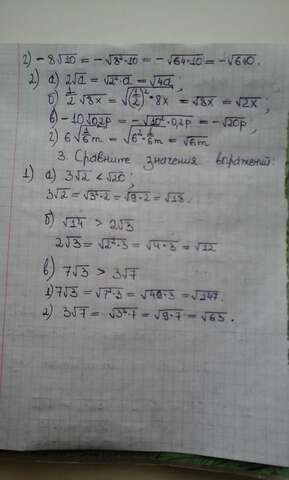 г) -8√10 = -√8²·10 = -√64·10 = -√640.
2) а) 2√a = √2²·a = √4a;
б) 1/2 √8x = √(1/2)²·8x = √8x = √2x;
в) -10√0,2p = -√10²·0,2p = -√20p;
г) 6√1/6 m = √6²·1/6 m = √6m
3. Сравните значения выражений:
1) а) 3√2 < √20;
3√2 = √3²·2 = √9·2 = √18.
б) √14 > 2√3
2√3 = √2²·3 = √4·3 = √12
в) 7√3 > 3√7
1) 7√3 = √7²·3 = √49·3 = √147.
2) 3√7 = √3²·7 = √9·7 = √63.